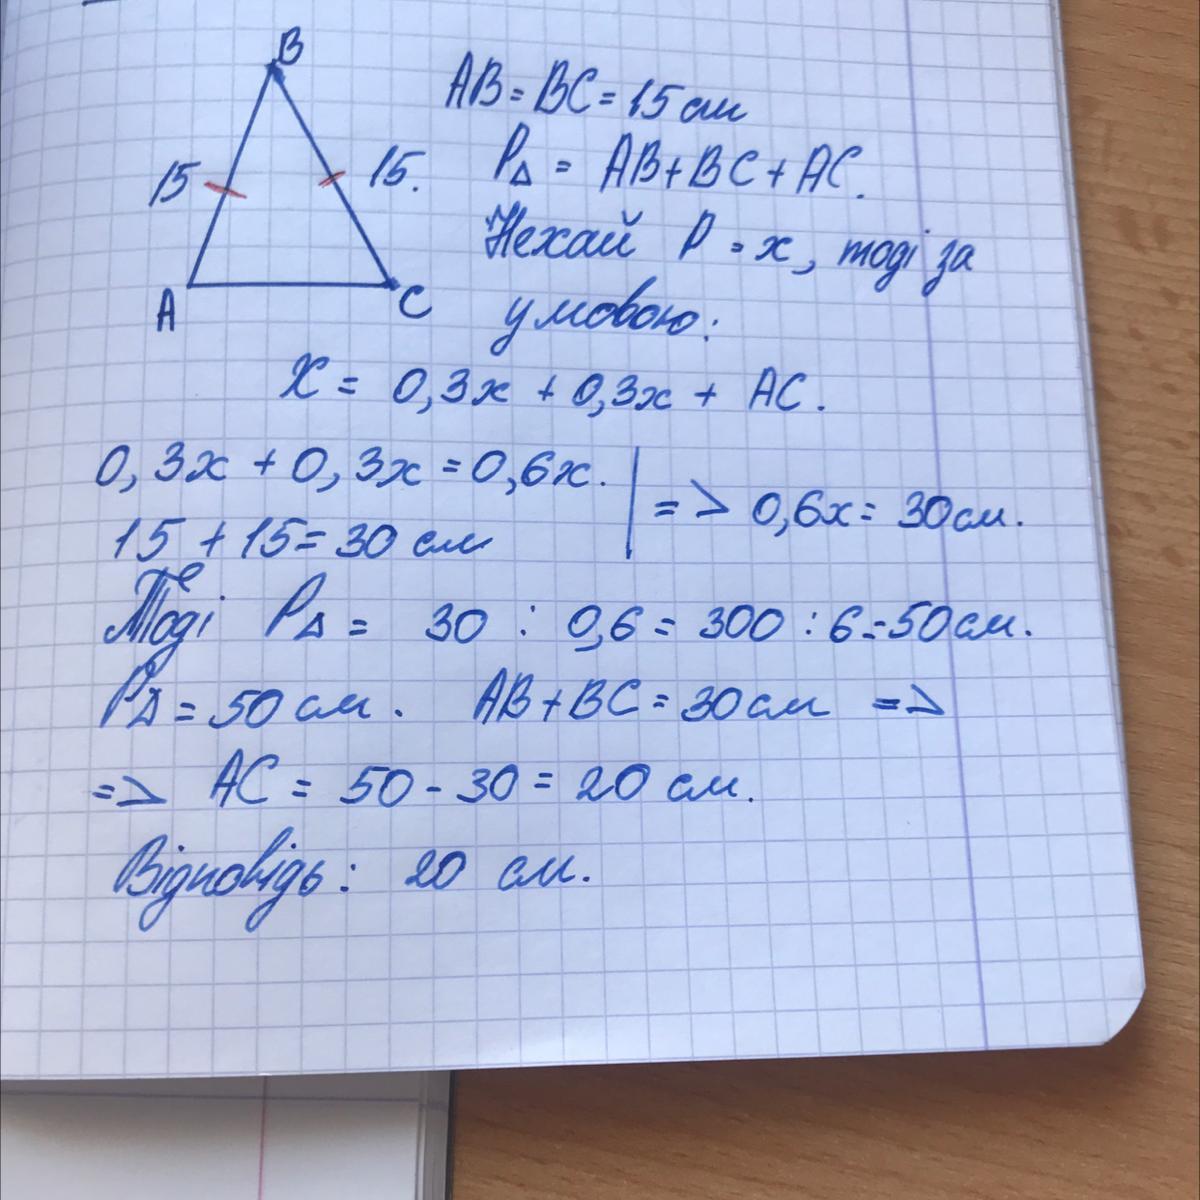 B
AB = BC = 15 см
15
15.
P∆ = AB + BC + AC.
Нехай P = x, тоді за
A
C
умовою:
X = 0,3x + 0,3x + AC.
0,3x + 0,3x = 0,6x.
=> 0,6x = 30 см.
15 + 15 = 30 см
Тоді P∆ = 30 : 0,6 = 300 : 6 = 50 см.
P∆ = 50 см. AB + BC = 30 см =>
=> AC = 50 - 30 = 20 см.
Відповідь: 20 см.